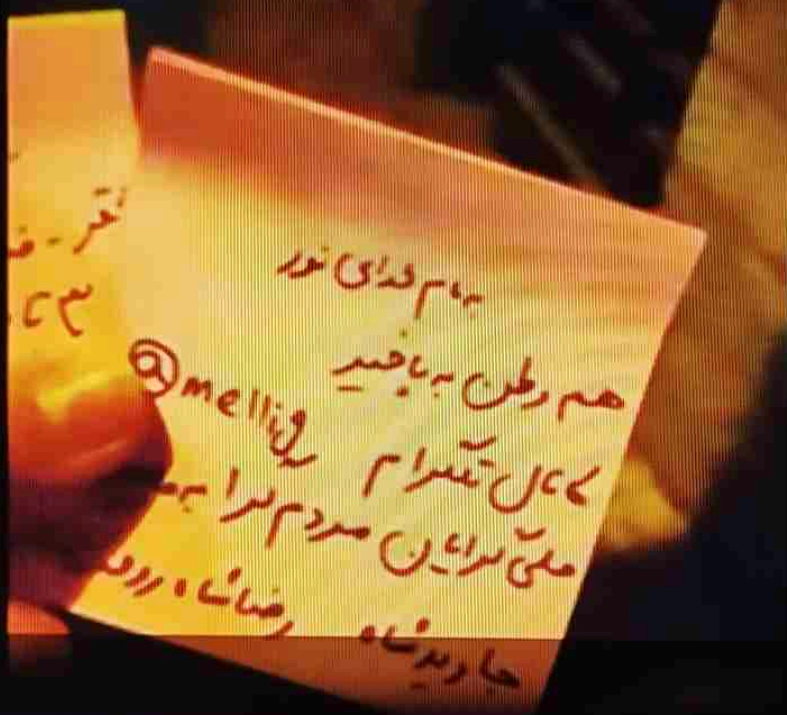 به نام خدای نور
هم وطن به پاخیز
کانال تلگرام @mellig
ملی گرایان مردم گرا به
جاوید شاه رضا شاه روح
فقر - ف
۳ تا